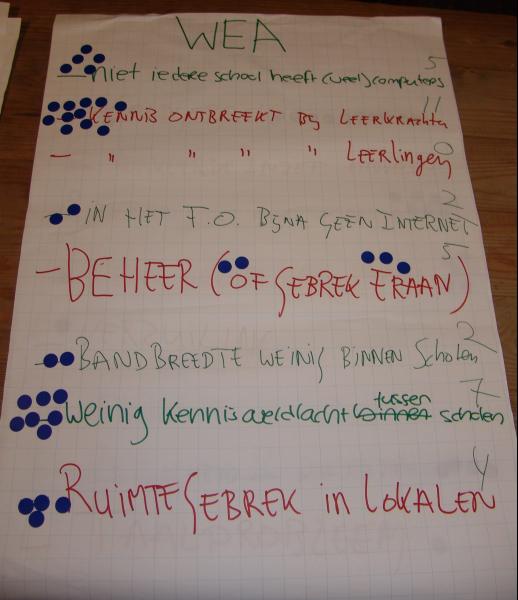 WEA
5
— niet iedere school heeft (veel) computers
11
— KENNIS ONTBREEKT BIJ LEERKRACHTEN
0
— " " " " LEERLINGEN
2
— IN HET F.O. BIJNA GEEN INTERNET
5
— BEHEER (OF GEBREK ERAAN)
2
— BANDBREEDTE WEINIG BINNEN Scholen
7
tussen
— weinig kennis binnen scholen
4
RUIMTEGEBREK in LOKALEN